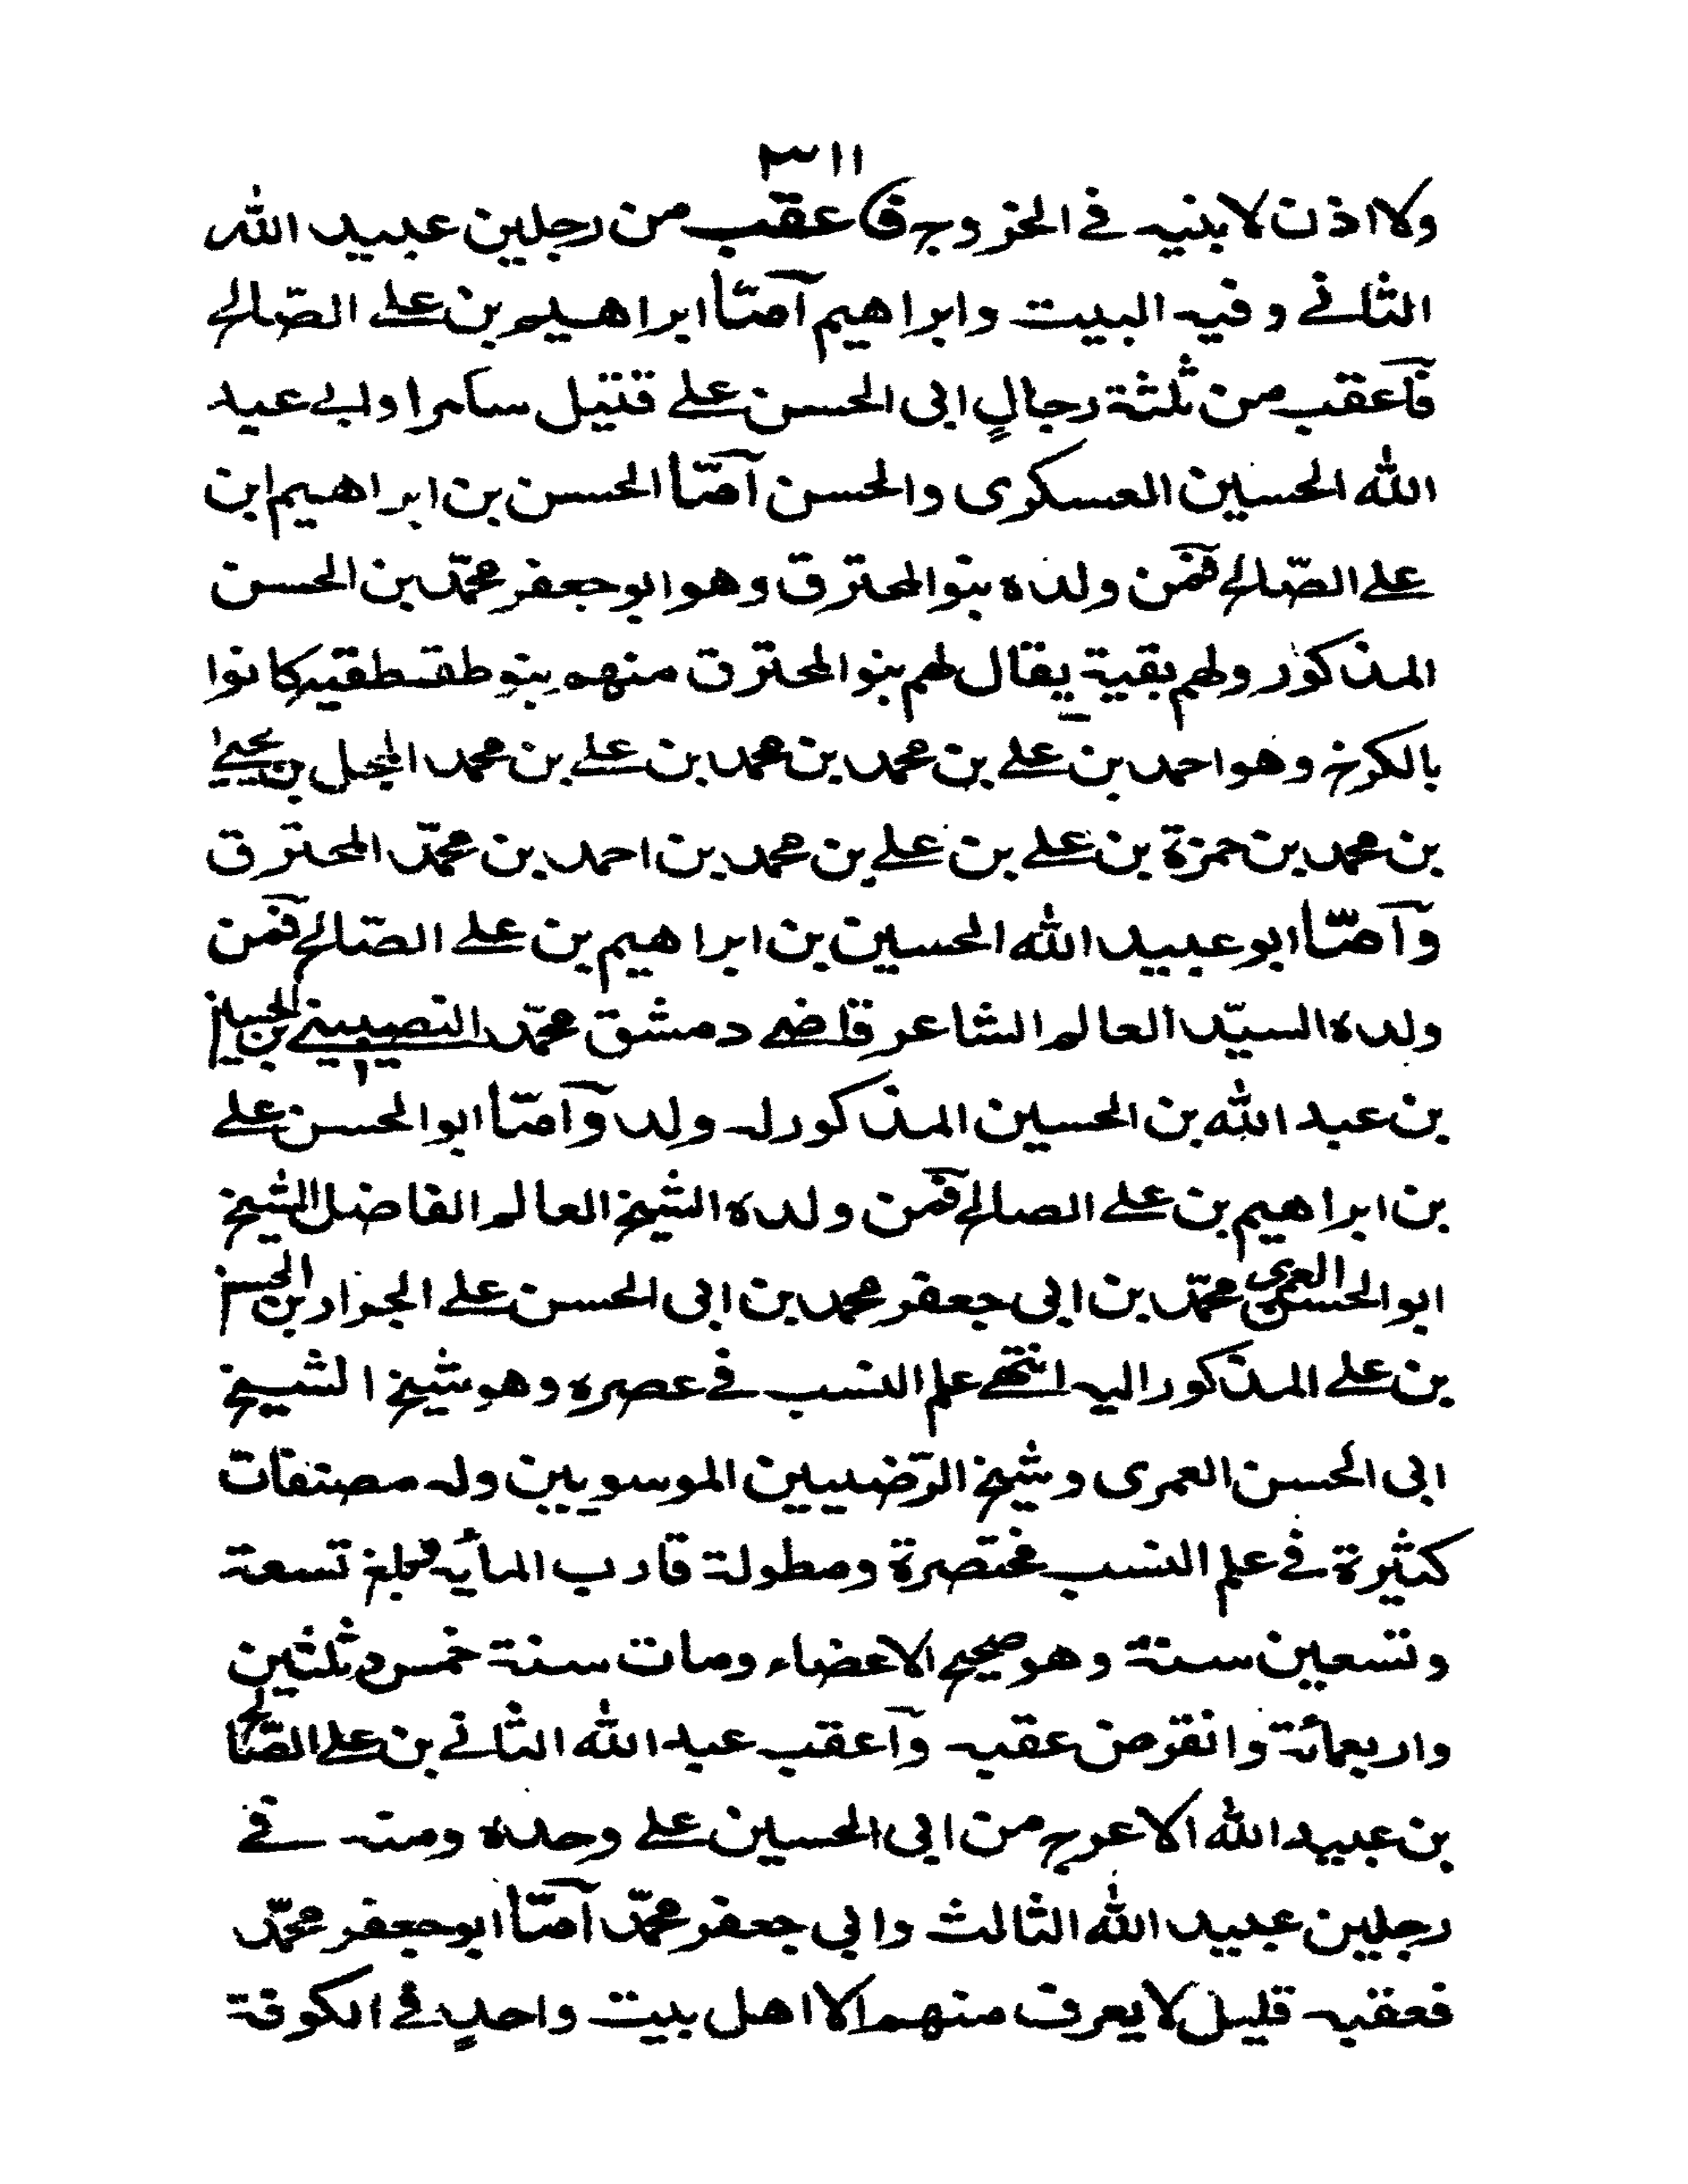 ٣١١
ولا اذن لابنيه في الخروج فاعقب من رجلين عبيد الله
الثاني وفيه البيت وابراهيم آمّا ابراهيم بن علي الصّالح
فآعقب من ثلثة رجالٍ ابى الحسن علي قتيل سامرا وابي عبد
الله الحسين العسكرى والحسن آمّا الحسن بن ابراهيم ابن
علي الصّالح فمن ولده بنو المحترق وهو ابو جعفر محمّد بن الحسن
المذكور ولهم بقية يقال لهم بنو المحترق منهم بنو طقطقيه كانوا
بالكرخ وهو احمد بن علي بن محمد بن محمد بن علي بن محمد المجل بن يحيي
بن محمد بن حمزة بن علي بن علي بن محمد بن احمد بن محمّد المحترق
وآمّا ابو عبيد الله الحسين بن ابراهيم بن علي الصّالح فمن
ولده السيّد العالم الشاعر قاضي دمشق محمّد النصيبيني بن الحسين
بن عبد الله بن الحسين المذكور له ولد وآمّا ابو الحسن علي
بن ابراهيم بن علي الصالح فمن ولده الشيخ العالم الفاضل الشيخ
ابو الحسن العمري محمّد بن ابى جعفر محمد بن ابى الحسن علي الجزار بن الحسن
بن علي المذكور اليه انتهي علم النسب في عصره وهو شيخ الشيخ
ابى الحسن العمرى وشيخ الرّضيين الموسويين وله مصنفات
كثيرة في علم النسب مختصرة ومطولة قارب المأية وبلغ تسعة
وتسعين سنة وهو صحيح الاعضاء ومات سنة خمس وثلثين
واربعمائة وانقرض عقبه وآعقب عبد الله الثاني بن علي الصّالح
بن عبيد الله الاعرج من ابى الحسين علي وحده ومنه في
رجلين عبيد الله الثالث وابي جعفر محمّد آمّا ابو جعفر محمّد
فعقبه قليل لا يعرف منهم الا اهل بيت واحدٍ في الكوفة